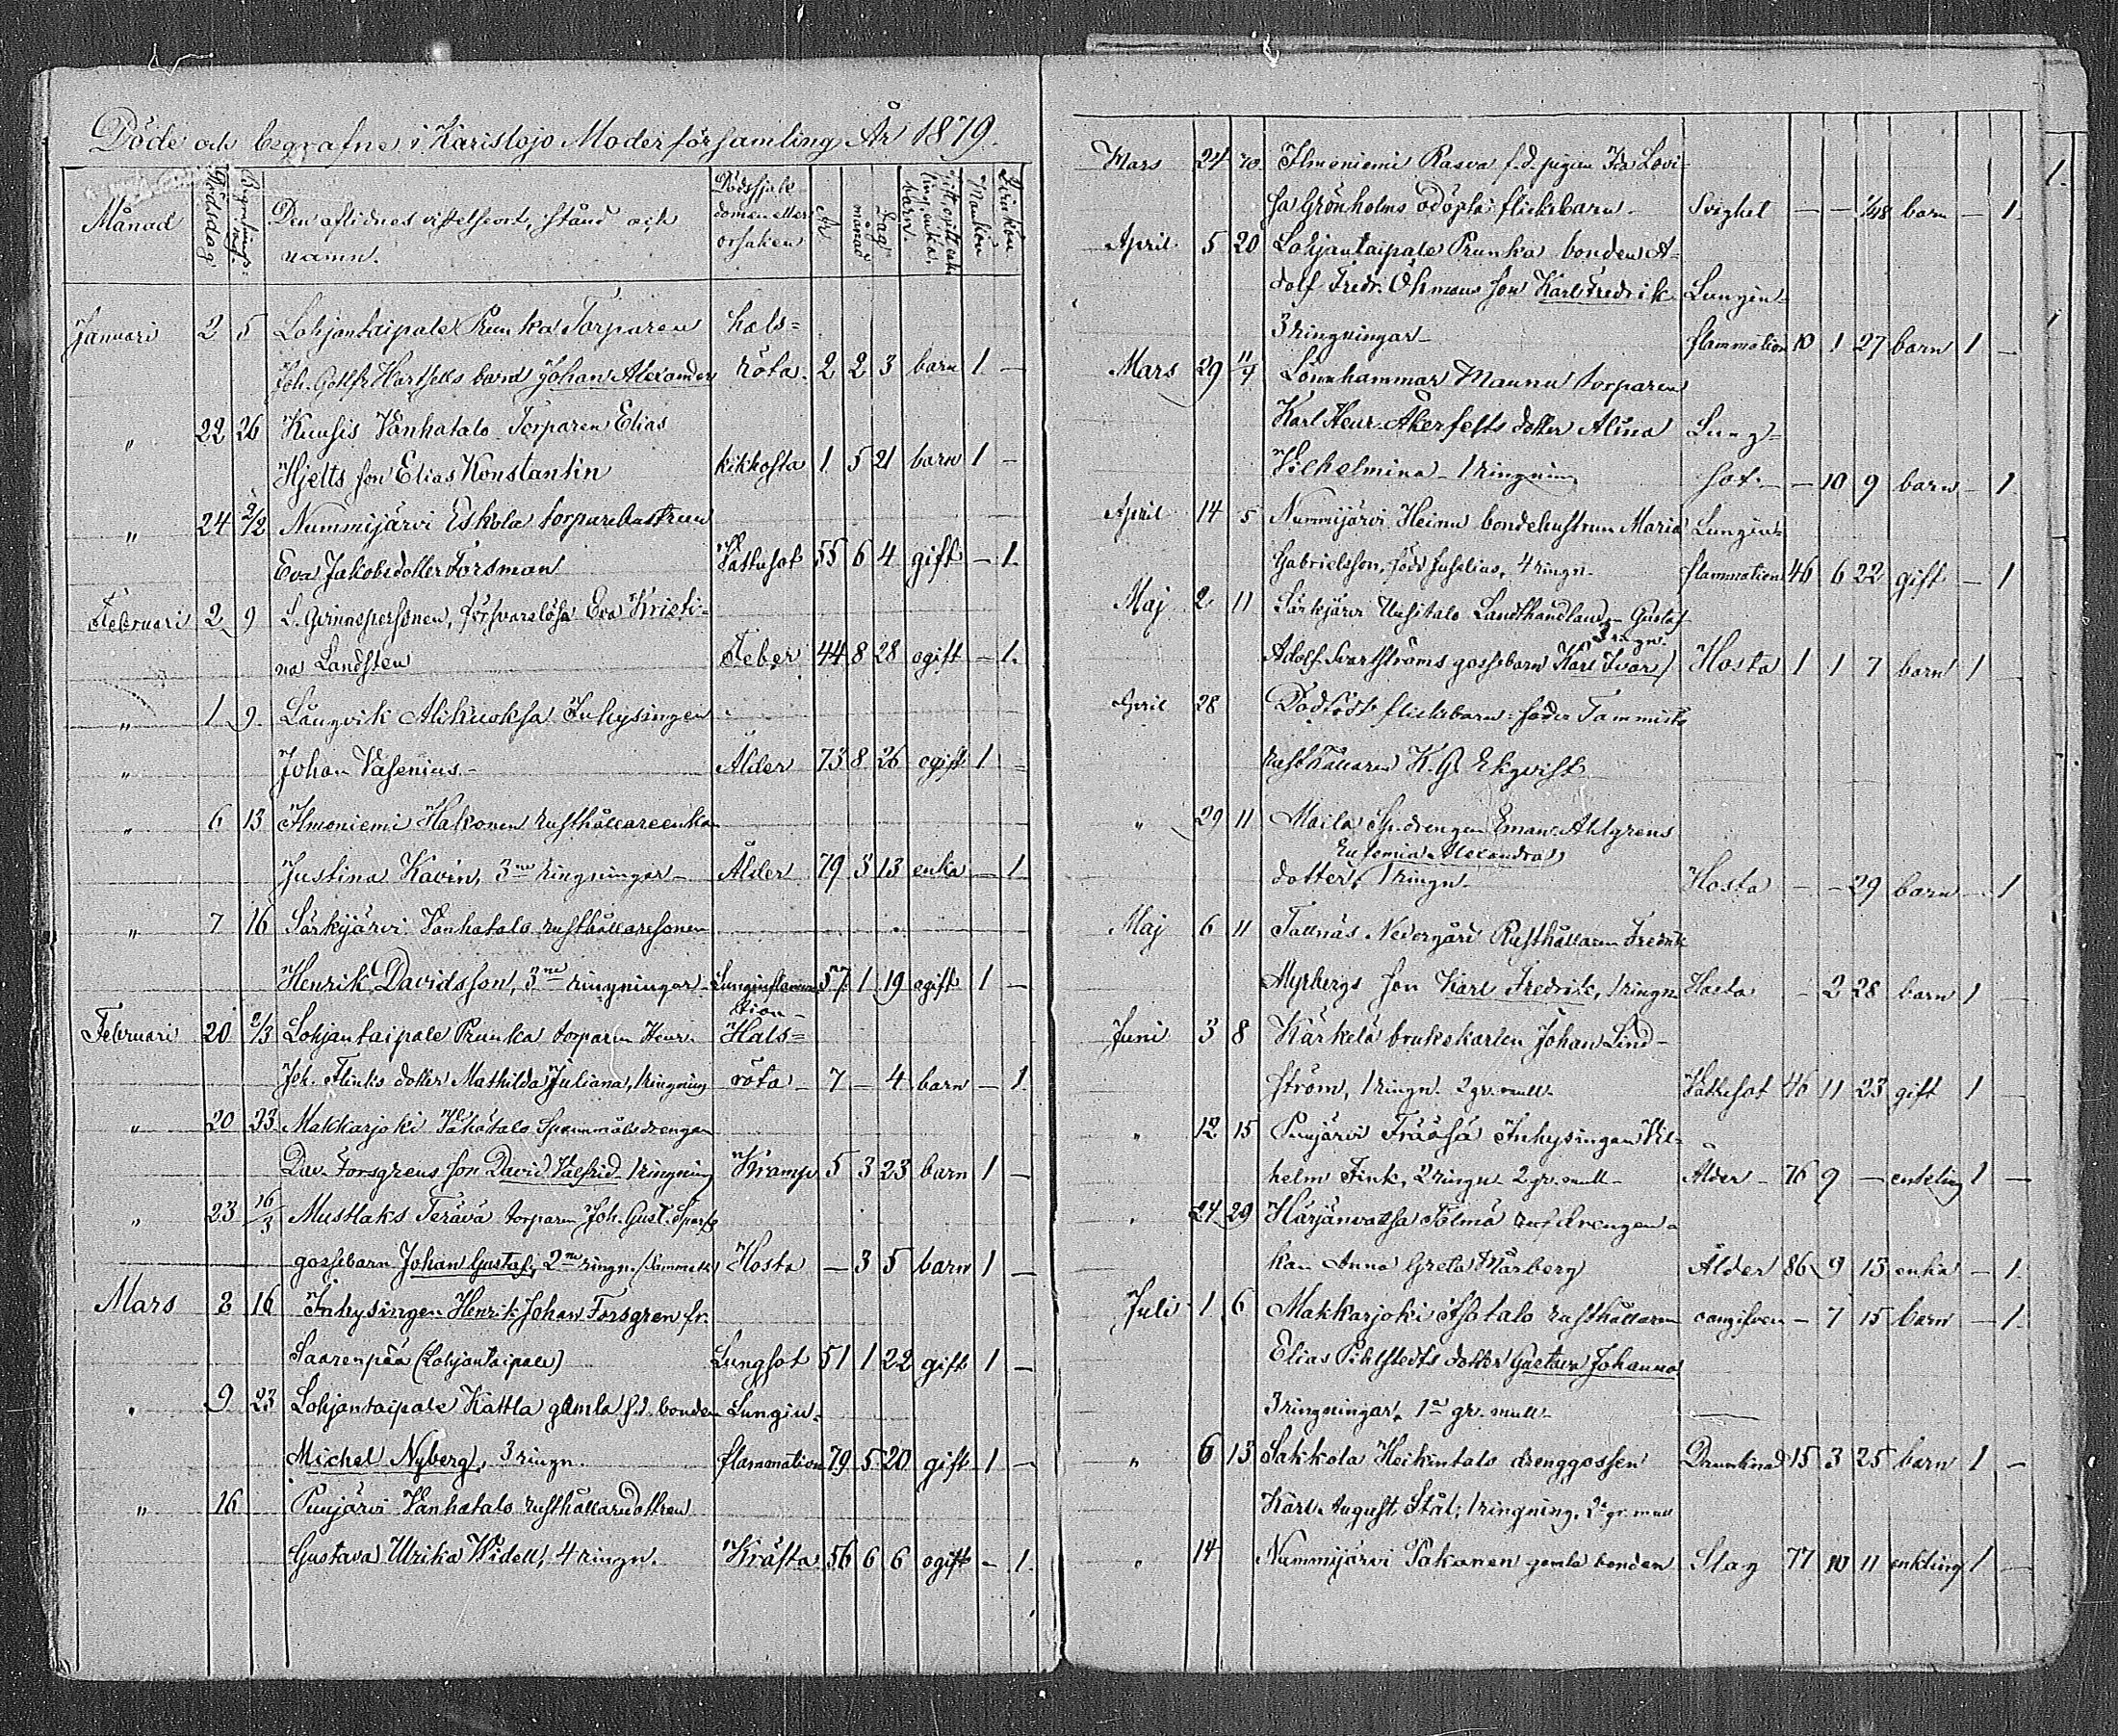 Döde och begrafne i Karislojo Moderförsamling År 1879.
Månad Dödsdag Begrafnings- Den aflidnes vistelseort, stånd och namn. Dödssjuk-domen eller orsaken År månad Dag barn. Mankön Qvinkön
Januari 2 5 Lohjantaipale Prunka Torparen hals=
Joh. Gottfr Hartfelts barn Johan Alexander röta. 2 2 3 barn 1. —
„ 22 26 Kuusis Vanhatalo Torparen Elias
Hjelts son Elias Konstantin kikhosta 1 5 21 barn 1 —
„ 24 2/2 Nummijärvi Eskola torparehustrun
Eva Jakobsdotter Forsman Vattusot 55 6 4 gift — 1.
Februari 2 9 försvarslösa Eva Kristi=
na Landsten Feber 44 8 28 ogift — 1.
„ 1 9 Långvik Alikuoksa Inhysingen
„ Johan Vasenius Ålder 73 8 26 ogift 1 —
„ 6 13 Ilmoniemi Hakonen rusthållareenkan
Justina Kavin, 3ne ringningar Ålder 79 3 13 enka — 1
„ 7 16 Särkijärvi Vanhatalo rusthållaresonen
Henrik Davidsson, 3ne ringningar Lunginflamma 57 1 19 ogift 1 —
tion
Februari 20 2/3 Lohjantaipale Prunka torparen Henr. Hals=
Joh. Flinks dotter Mathilda Juliana, 1 ringning röta — 7 — 4 barn — 1.
„ 20 23 Makkarjoki Vähätalo Spannmålsdrengen
Dav. Forsgrens son David Valfrid 1 ringning Kramp 5 3 23 barn 1 —
„ 23 16/3 Mustlaks Terävä torparen Joh. Gust.
gossebarn Johan Gustaf, 2ne ringn. Hosta — 3 5 barn 1 —
Mars 2 16 Inhysingen Henrik Johan Forsgren fr.
Saarenpää (Lohjantaipale) Lungsot 51 1 22 gift 1 —
„ 9 23 Lohjantaipale Kattla gamla f.d. bonden Lungin=
Michel Nyberg, 3 ringn. flammation 79 5 20 gift 1 —
„ 16 Puujärvi Vanhatalo rusthållaredottren
Gustava Ulrika Widell, 4 ringn. Kräfta 56 6 6 ogift — 1.
Mars 24 Ilmoniemi Rasva f.d. pigan Ida Lovi-
sa Grönholms odöpta flickebarn — — barn — 1.
April 5 20 Lohjantaipale Prunka bonden A-
dolf Fredr. Öhmans son Karl Fredrik Lungin-
3 ringningar flammation 10 1 27 barn 1 —
Mars 29 11/4 Lönnhammar Maunu torparen
Karl Henr. Åkerfelts dotter Alina Lung-
Vilhelmina 1 ringning sot. — 10 9 barn — 1.
April 14 5 Nummijärvi Heinu bondehustrun Maria Lungin-
Gabrielsson, född Juselius, 4 ringn. flammation 46 6 22 gift — 1
Maj 2 11 Särkjärvi Uusitalo Landthandland. Gustaf
3 ringn.
Adolf Svartströms gossebarn Karl Ivar Hosta 1 1 7 barn 1 —
April 28 Dödfödt flickebarn: fader Tammisto
rusthållaren K.G. Ekqvist
„ 29 11 Maila drengen Eman. Ahlgrens
Eufemia Alexandra
dotter, 1 ringn. Hosta — — 29 barn — 1
Maj 6 11 Tallnäs Nedergård Rusthållaren Fredrik
Myrbergs son Karl Fredrik, 1 ringn. Hosta — 2 28 barn 1 —
Juni 3 8 Kärkelä brukskarlen Johan Lind-
ström, 1 ringn. 2 gr. mull. Vattusot 46 11 23 gift 1 —
„ 12 15 Puujärvi Inhysingen Vil-
helm Fink, 2 ringn. 2 gr. mull. Ålder 76 9 — enkling 1 —
„ 24 29 Härjänvatsa Tolmä drengen
kan Anna Greta Mårberg Ålder 86 9 13 enka — 1.
Juli 1 6 Makkarjoki Isotalo rusthållaren oangifven — 7 15 barn — 1.
Elias Pihlstedts dotter Gustava Johanna
3 ringningar, 1a gr. mull.
„ 6 13 Sakkola Heikintalo drenggossen Drunknad 15 3 25 barn 1 —
Karl August Stål; 1 ringning, 2a gr. mull
„ 14 Nummijärvi Pakanen gamla bonden Slag 77 10 11 enkling 1 —